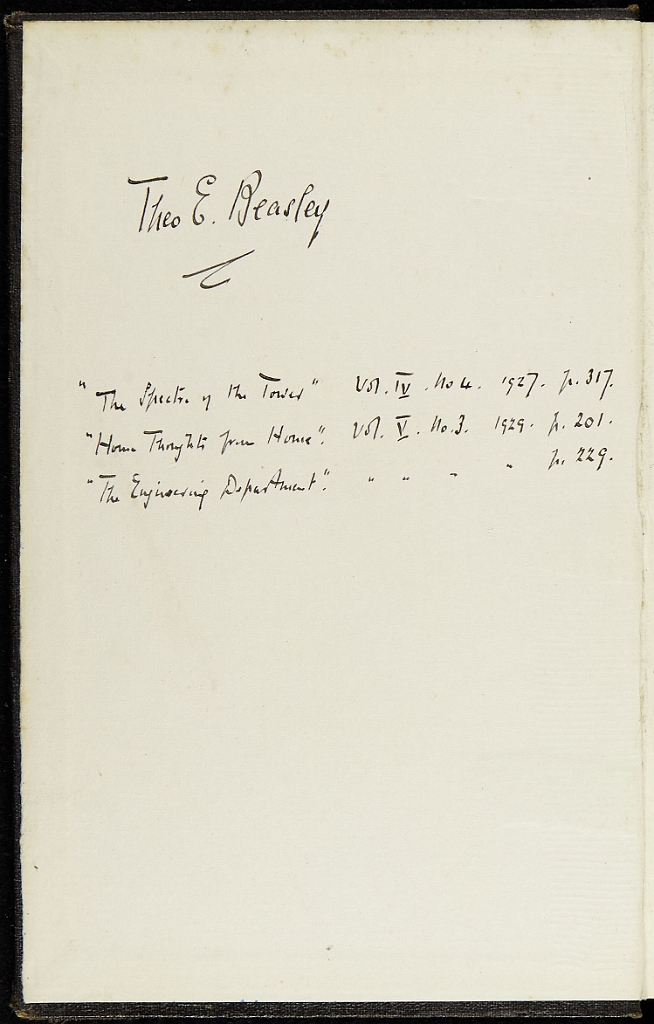 Theo E. Beasley
"The Spectre of the Tower" Vol. IV. No 4. 1927. p. 317.
"Home Thoughts from Home". Vol. V. No. 3. 1929. p. 201.
"The Engineering Department". " " " " p. 229.